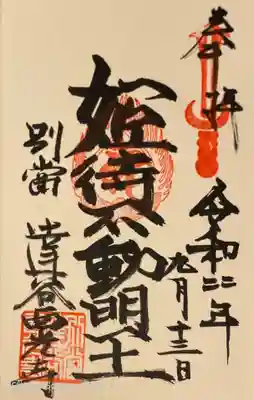 奉拝
令和二年
九月十三日
姫待不動明王
別當 達谷西光寺